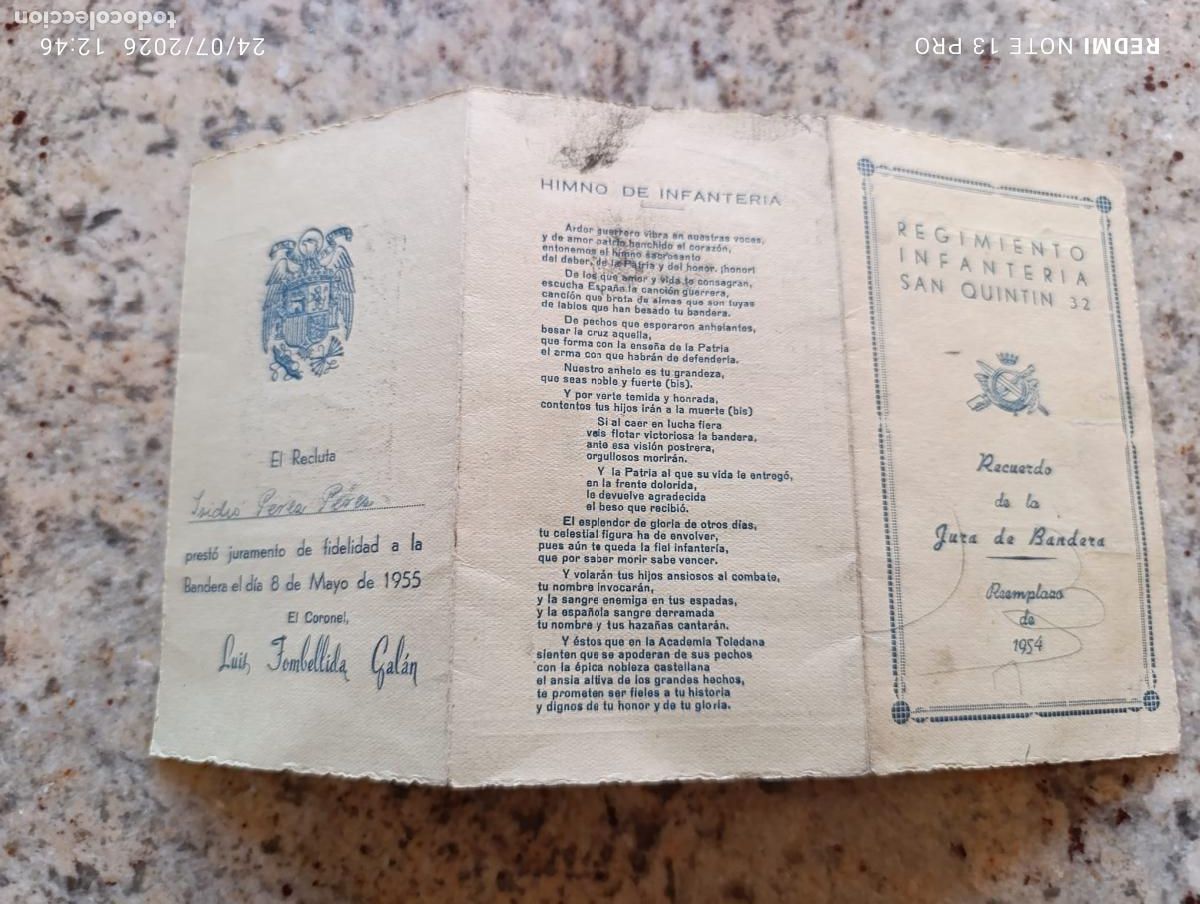 todocoleccion
24/07/2026 12:46
REDMI NOTE 13 PRO
El Recluta
Isidro Perea Pérez
prestó juramento de fidelidad a la
Bandera el día 8 de Mayo de 1955
El Coronel,
Luis Fombellida Galán
HIMNO DE INFANTERIA
Ardor guerrero vibra en nuestras voces,
y de amor patrio henchido el corazón,
entonemos el himno sacrosanto
del deber, de la Patria y del honor. ¡honor!
De los que amor y vida te consagran,
escucha España la canción guerrera,
canción que brota de almas que son tuyas
de labios que han besado tu bandera.
De pechos que esperaron anhelantes,
besar la cruz aquella,
que forma con la enseña de la Patria
el arma con que habrán de defenderla.
Nuestro anhelo es tu grandeza,
que seas noble y fuerte (bis).
Y por verte temida y honrada,
contentos tus hijos irán a la muerte (bis)
Si al caer en lucha fiera
veis flotar victoriosa la bandera,
ante esa visión postrera,
orgullosos morirán.
Y la Patria al que su vida le entregó,
en la frente dolorida,
le devuelve agradecida
el beso que recibió.
El esplendor de gloria de otros días,
tu celestial figura ha de envolver,
pues aún te queda la fiel infantería,
que por saber morir sabe vencer.
Y volarán tus hijos ansiosos al combate,
tu nombre invocarán,
y la sangre enemiga en tus espadas,
y la española sangre derramada
tu nombre y tus hazañas cantarán.
Y éstos que en la Academia Toledana
sienten que se apoderan de sus pechos
con la épica nobleza castellana
el ansia altiva de los grandes hechos,
te prometen ser fieles a tu historia
y dignos de tu honor y de tu gloria.
REGIMIENTO
INFANTERIA
SAN QUINTIN 32
Recuerdo
de la
Jura de Bandera
Reemplazo
de
1954